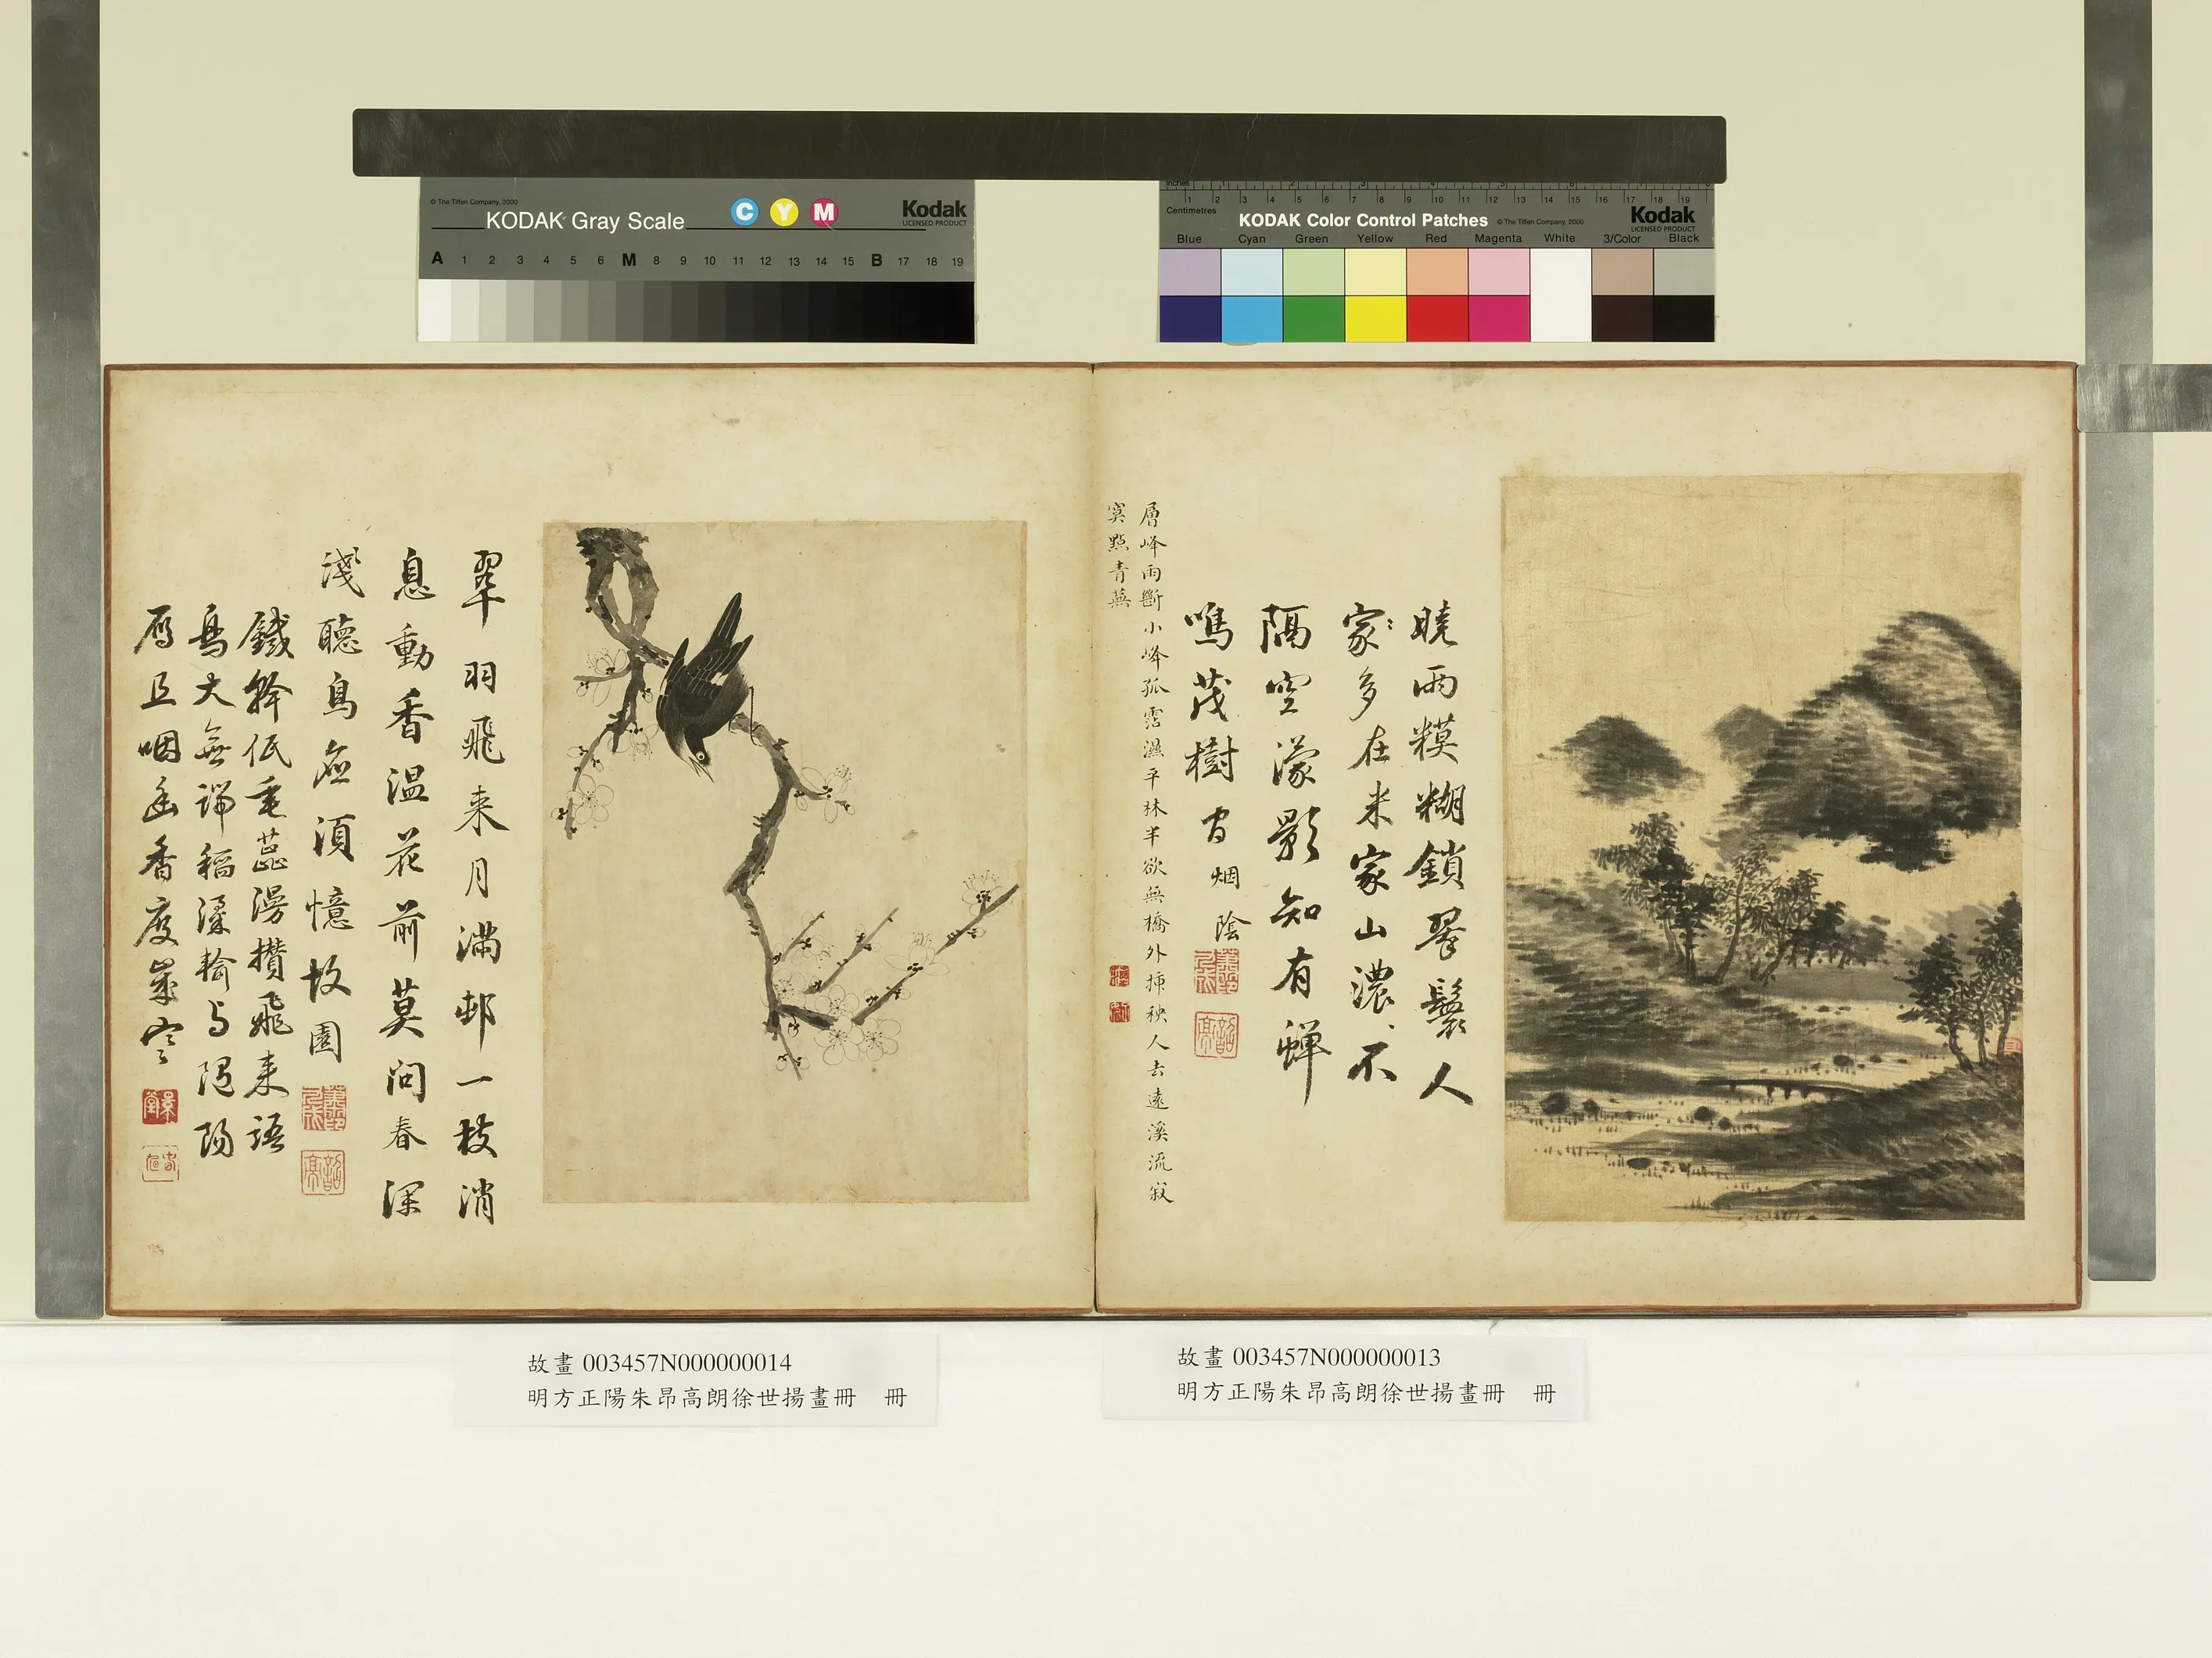 © The Tiffen Company, 2000
KODAK Gray Scale
C Y M
Kodak
LICENSED PRODUCT
A 1 2 3 4 5 6 M 8 9 10 11 12 13 14 15 B 17 18 19
Inches
1 2 3 4 5 6 7 8
Centimetres
1 2 3 4 5 6 7 8 9 10 11 12 13 14 15 16 17 18 19
KODAK Color Control Patches
© The Tiffen Company, 2000
Kodak
LICENSED PRODUCT
Blue Cyan Green Yellow Red Magenta White 3/Color Black
曉雨糢糊鎖翠鬟人
家多在米家山濃不
隔空濛影知有蟬
鳴茂樹 烟
陰
層峰雨斷小峰孤雲濕平林半欲無橋外插秧人去遠溪流寂
寞點青蕪
翠羽飛来月滿邨一枝消
息動香温花前莫问春深
淺聽鳥應須憶故園
鐵幹低垂蕊漫攢飛来語
鳥大無端稻 輸与随陽
雁且 香度歲寒
故畫 003457N000000014
明方正陽朱昂高朗徐世揚畫冊 冊
故畫 003457N000000013
明方正陽朱昂高朗徐世揚畫冊 冊